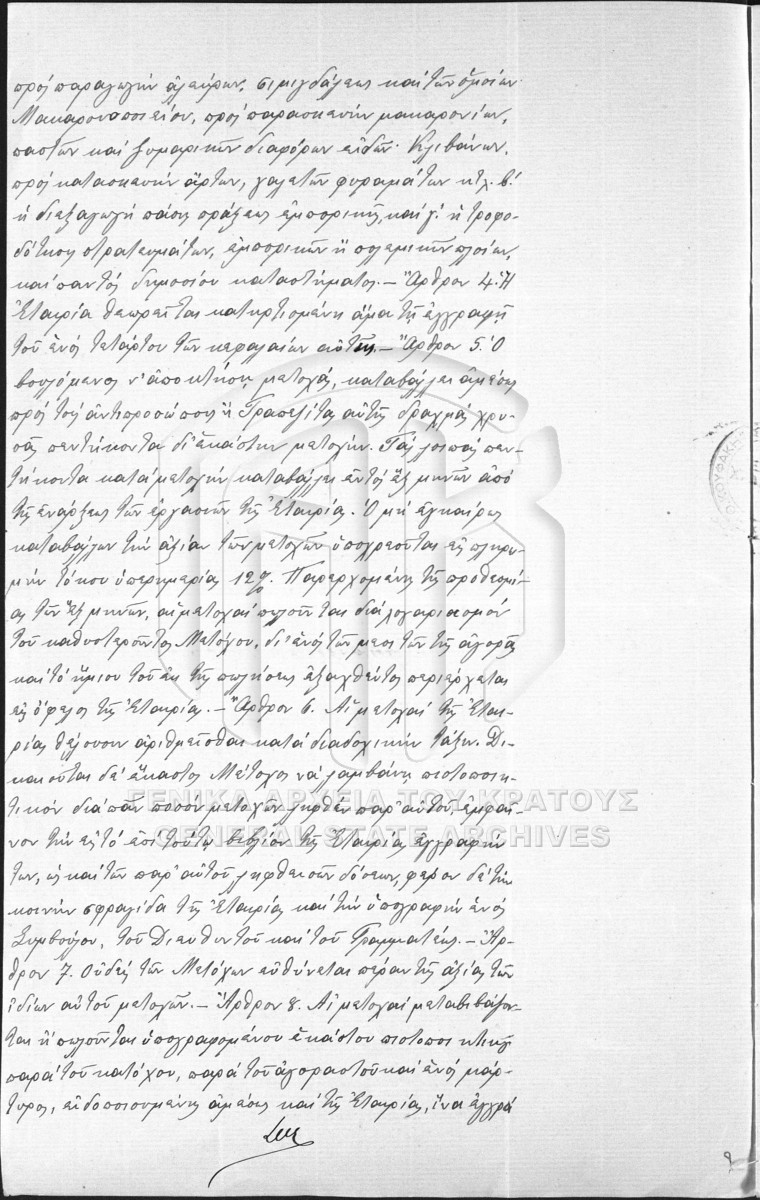 πρὸς παραγωγὴν ἀλεύρων, σιμιγδάλεως καὶ τῶν ὁμοίων·
Μακαρονοποιείου, πρὸς παρασκευὴν μακαρονίων,
παστῶν καὶ ζυμαρικῶν διαφόρων εἰδῶν· Κλιβάνων,
πρὸς κατασκευὴν ἄρτων, γαλετῶν φυραμάτων κτλ. β.'
ἡ διεξαγωγὴ πάσης πράξεως ἐμπορικῆς, καὶ γ.' ἡ τροφο-
δότησις στρατευμάτων, ἐμπορικῶν ἢ πολεμικῶν πλοίων,
καὶ παντὸς δημοσίου καταστήματος.— Ἄρθρον 4. Ἡ
Ἑταιρία θεωρεῖται κατηρτισμένη ἅμα τῇ ἐγγραφῇ
τοῦ ἑνὸς τετάρτου τῶν κεφαλαίων αὐτῆς.— Ἄρθρον 5. Ὁ
βουλόμενος ν' ἀποκτήσῃ μετοχάς, καταβάλλει ἀμέσως
πρὸς τοὺς ἀντιπροσώπους ἢ Τραπεζίτας αὐτῆς δραχμὰς χρυ-
σᾶς πεντήκοντα δι' ἑκάστην μετοχήν. Τὰς λοιπὰς πεν-
τήκοντα κατὰ μετοχὴν καταβάλλει ἐντὸς ἓξ μηνῶν ἀπὸ
τῆς ἐνάρξεως τῶν ἐργασιῶν τῆς Ἑταιρίας. Ὁ μὴ ἐγκαίρως
καταβάλλων τὴν ἀξίαν τῶν μετοχῶν ὑποχρεοῦται εἰς πληρω-
μὴν τόκου ὑπερημερίας 12%. Παρερχομένης τῆς προθεσμί-
ας τῶν ἓξ μηνῶν, αἱ μετοχαὶ πωλοῦνται διὰ λογαριασμὸν
τοῦ καθυστεροῦντος Μετόχου, δι' ἑνὸς τῶν μεσιτῶν τῆς ἀγορᾶς
καὶ τὸ ἥμισυ τοῦ ἐκ τῆς πωλήσεως ἐξαχθέντος περιέρχεται
εἰς ὄφελος τῆς Ἑταιρίας.— Ἄρθρον 6. Αἱ μετοχαὶ τῆς Ἑται-
ρίας θέλουσιν ἀριθμεῖσθαι κατὰ διαδοχικὴν τάξιν. Δι-
καιοῦται δὲ ἕκαστος Μέτοχος νὰ λαμβάνῃ πιστοποιη-
τικὸν διὰ πᾶν ποσὸν μετοχῶν ληφθὲν παρ' αὐτοῦ, ἐμφαῖ-
νον τὴν εἰς τὸ ἐπὶ τούτῳ βιβλίον τῆς Ἑταιρίας ἐγγραφήν
των, ὡς καὶ τῶν παρ' αὐτοῦ ληφθεισῶν δόσεων, φέρον δὲ τὴν
κοινὴν σφραγῖδα τῆς Ἑταιρίας καὶ τὴν ὑπογραφὴν ἑνὸς
Συμβούλου, τοῦ Διευθυντοῦ καὶ τοῦ Γραμματέως.— Ἄρ-
θρον 7. Οὐδεὶς τῶν Μετόχων εὐθύνεται πέραν τῆς ἀξίας τῶν
ἰδίων αὐτοῦ μετοχῶν.— Ἄρθρον 8. Αἱ μετοχαὶ μεταβιβάζον-
ται ἢ πωλοῦνται ὑπογραφομένου ἑκάστου πιστοποιητικοῦ
παρὰ τοῦ κατόχου, παρὰ τοῦ ἀγοραστοῦ καὶ ἑνὸς μάρ-
τυρος, εἰδοποιουμένης ἀμέσως καὶ τῆς Ἑταιρίας, ἵνα ἐγγρά
ΓΕΝΙΚΑ ΑΡΧΕΙΑ ΤΟΥ ΚΡΑΤΟΥΣ
GENERAL STATE ARCHIVES